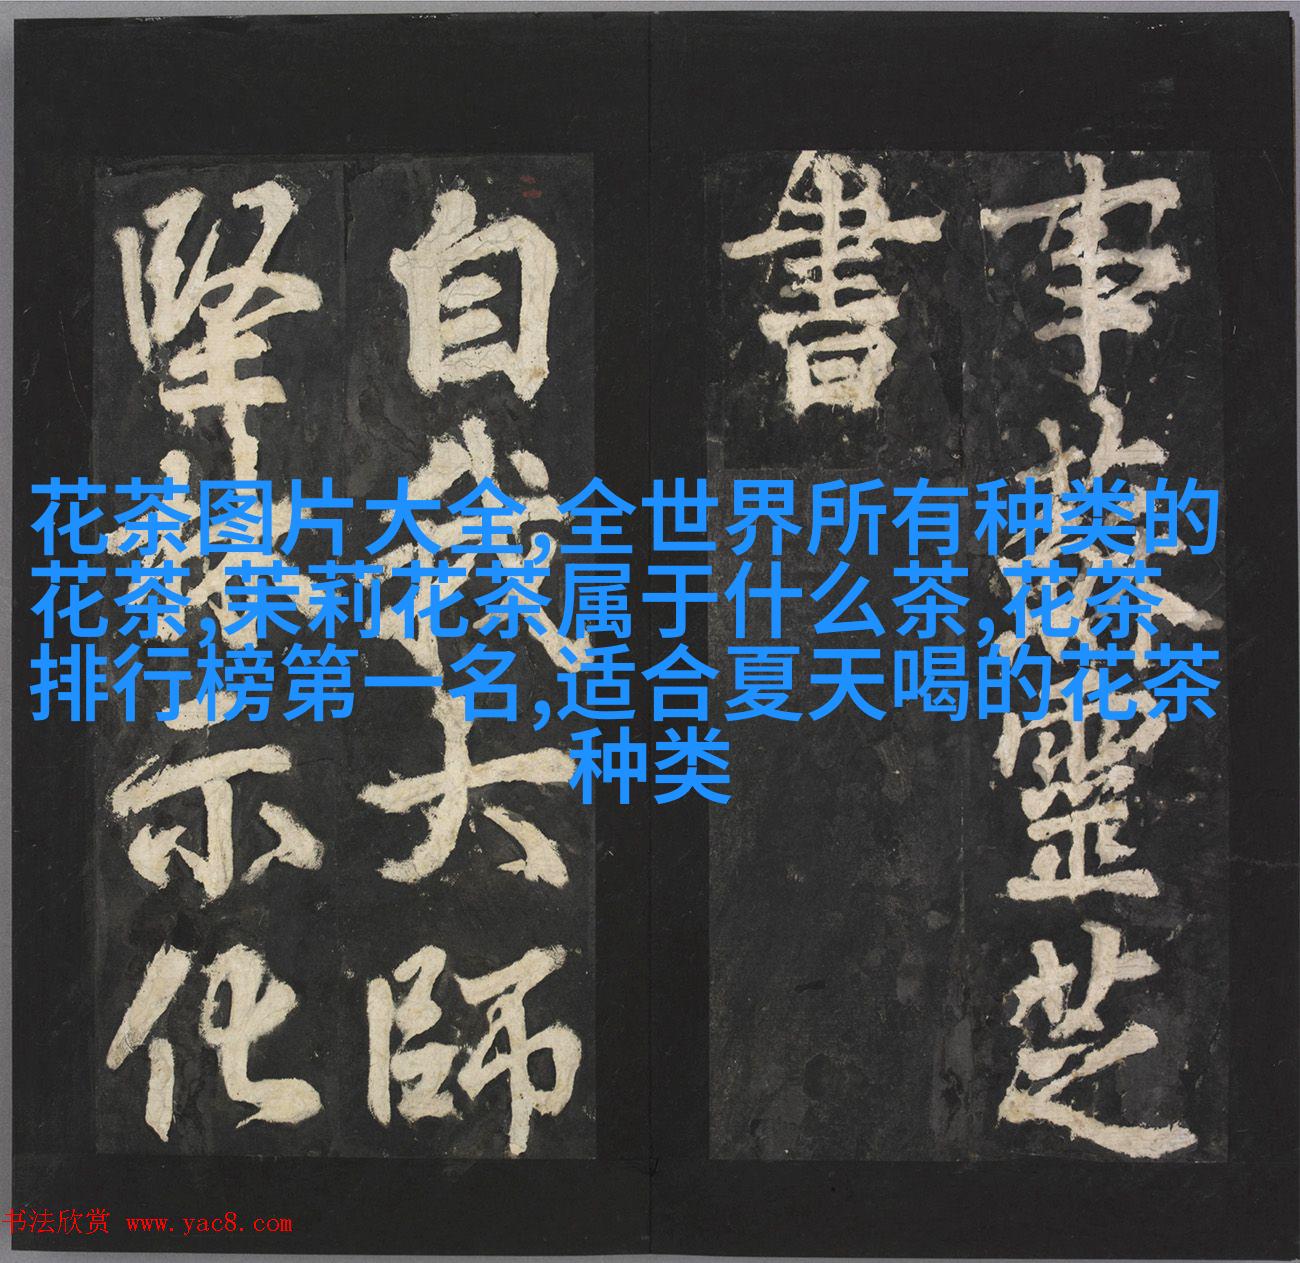 事蘇靈芝
書
自我大師
堅林示化
花茶图片大全,全世界所有种类的
花茶,茉莉花茶属于什么茶,花茶
排行榜第一名,适合夏天喝的花茶
种类
书法欣赏 www.yac8.com